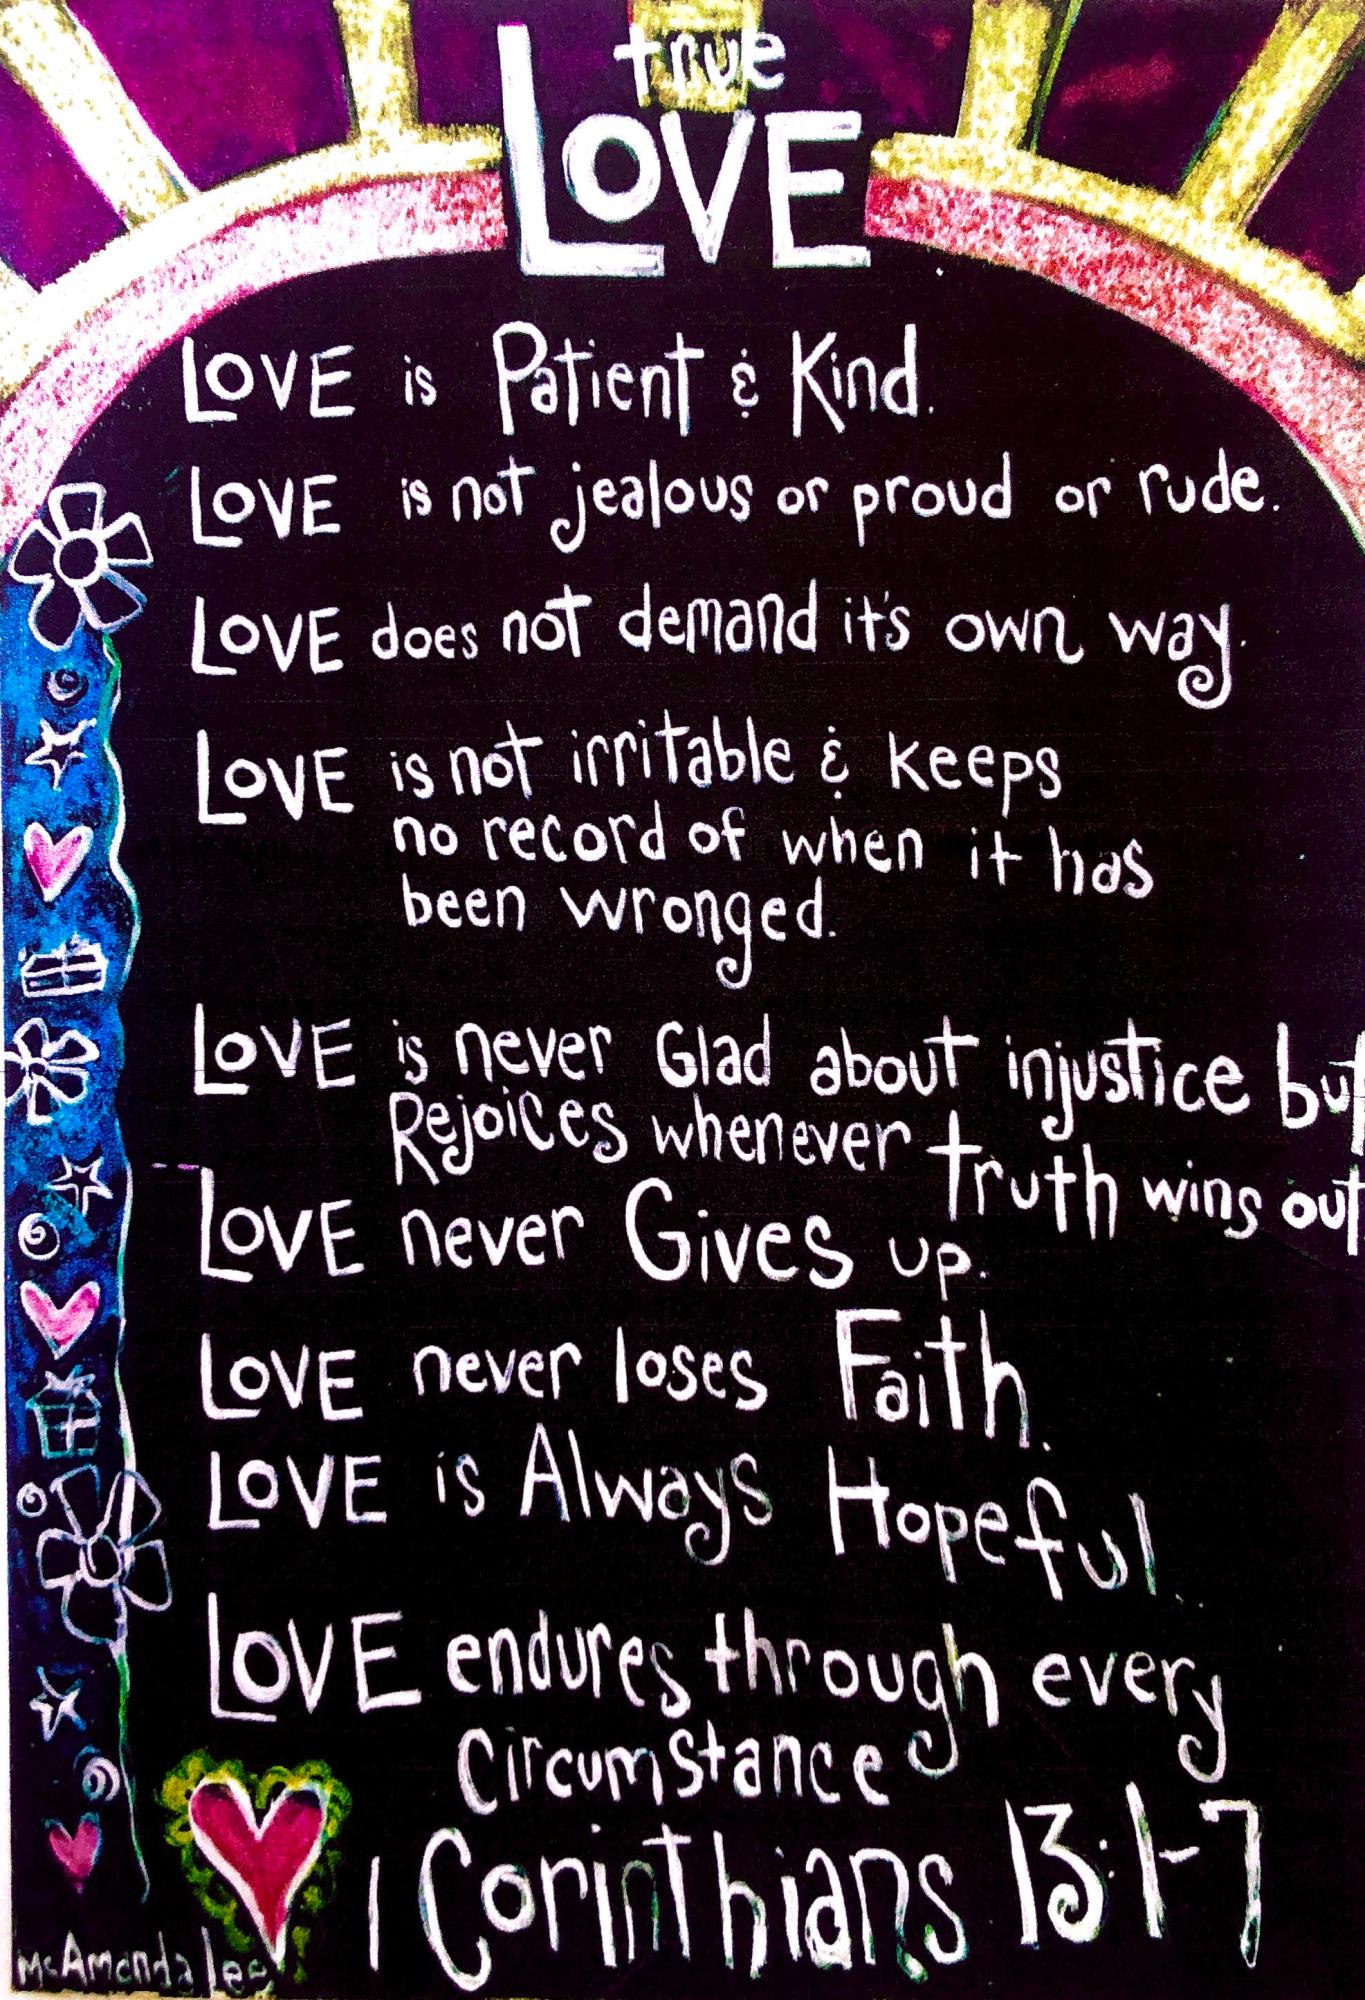 true
LOVE
LOVE is Patient & Kind.
LOVE is not jealous or proud or rude.
LOVE does not demand it's own way.
LOVE is not irritable & keeps
no record of when it has
been wronged.
LOVE is never Glad about injustice but
Rejoices whenever truth wins out
LOVE never Gives up.
LOVE never loses Faith.
LOVE is Always Hopeful.
LOVE endures through every
Circumstance
1 Corinthians 13:1-7
McAmanda Lee